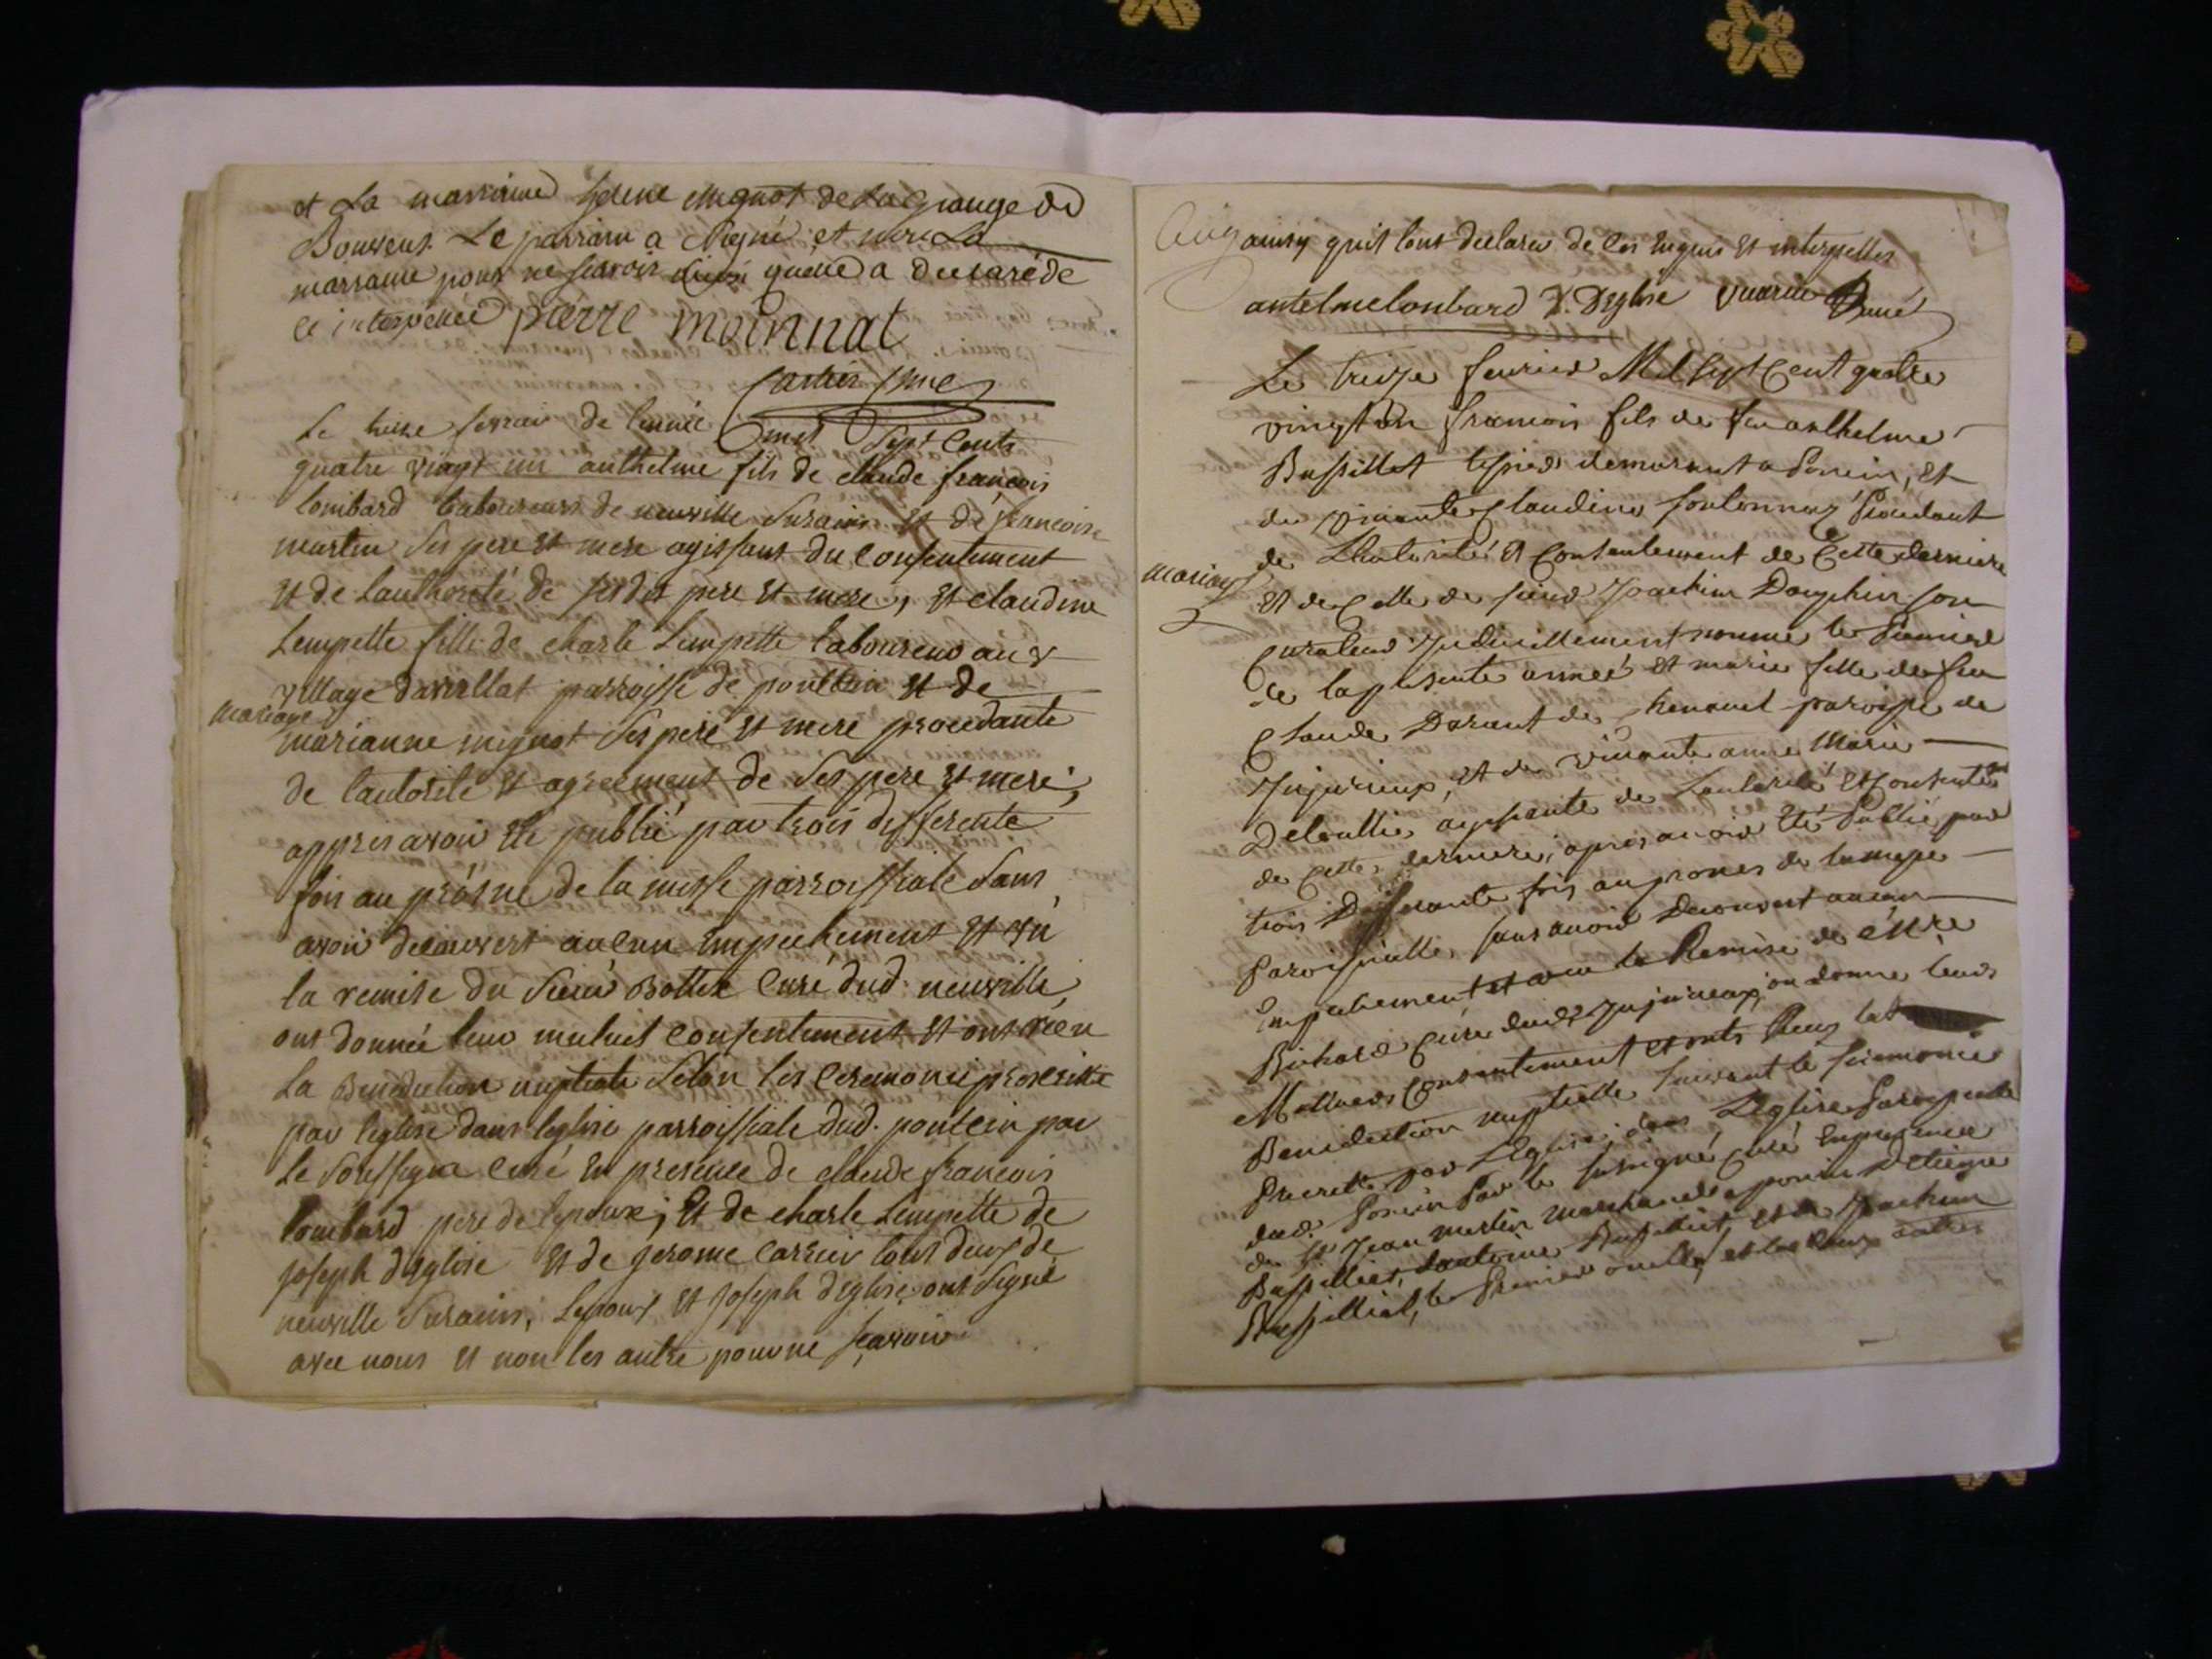 et La marrainne helene mignot de La Grange de
Bouvent. Le parrain a signé et non La
marraine pour ne scavoir qu'elle a declaré de
ce interpellée pierre moinnat
Le treize fevrier de l'année mil Sept Cents
quatre vingt un anthelme fils de claude francois
lombard laboureurs de neuville Surains et de francoise
martin Ses pere et mere agissant du Consentement
et de lauthorité de sesdit pere et mere, et claudine
Lempette fille de charle Lempette laboureur au
village davrillat parroisse de pontein et de
mariage
marianne mignot Ses pere et mere procedante
de lautorité et agreement de Ses pere et mere,
appres avoir été publié par trois differente
fois au prosne de la messe parroissiale Sans
avoir decouvert aucun Empechement et vû
la remise du Sieur Bottex Curé dud. neuville,
ont donnée leur mutuel Consentement et ont recu
La Benediction nuptiale Selon les Ceremonie prescritte
par leglise dans leglise parroissiale dud. poncin par
le Soussigné Curé En presence de claude francois
lombard pere de lepoux; et de charle Lempette de
joseph deglise et de jerome Carrier tout deux de
neuville Surains, Lepoux et joseph deglise ont Signé
avec nous et non les autre pour ne scavoir
ainsy quil lont declaré de Ces Enquis et interpelles
antelme lonbard J. Deglise
Le treize fevrier Mil sept Cent quatre
vingt un francois fils de feu anthelme
Bussillet demeurant a Poncin, et
de vivante Claudine
de Lauthorité et Consentement de Cette derniere
mariage
et de Celle de sieur Joachim Dauphin son
Curateur Judiciellement nommé le
de la presente année et marie fille de feu
Claude Darant de Chenavel paroisse de
Jujurieux, et de vivante anne Marie
de Lautorité et Consentemt
de Cette derniere, apres avoir Eté Publié par
trois Differante fois au prones de la messe
Paroissialle, sans avoir Decouvert aucun
Empechement et vue la Remise de Messire
Richard Curé dud. Jujurieux, on donne leurs
Mutuels Consantement et onts Reçu la
Benediction nuptialle suivant le seremonie
Prescritte par L'Eglise, dans L'eglise Paroissialle
dud. Poncin Par le sousigné Curé En presence
du Sr Jean martin marchand a poncin D'etienne
Bussilliet, d'antoine Bussilliet, et de Joachim
Bussilliet, le Premier oncle, et les deux autres